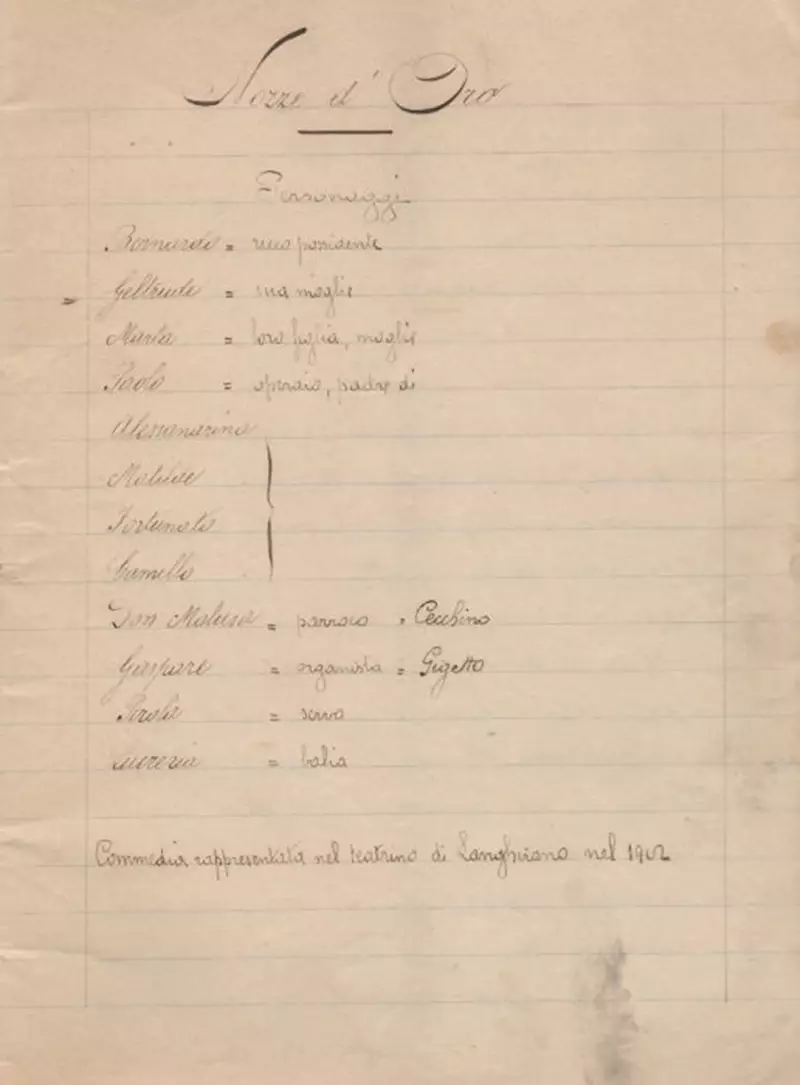 Nozze d'Oro
Personaggi
Bernardo = ricco possidente
Geltrude = sua moglie
Marta = loro figlia, moglie
Paolo = operaio, padre di
Alessandrino
Matilde
Fortunato
Camillo
Don = parroco = Cecchino
Gaspare = organista = Gigetto
= servo
Lucrezia = balia
Commedia rappresentata nel teatrino di Langhirano nel 1902